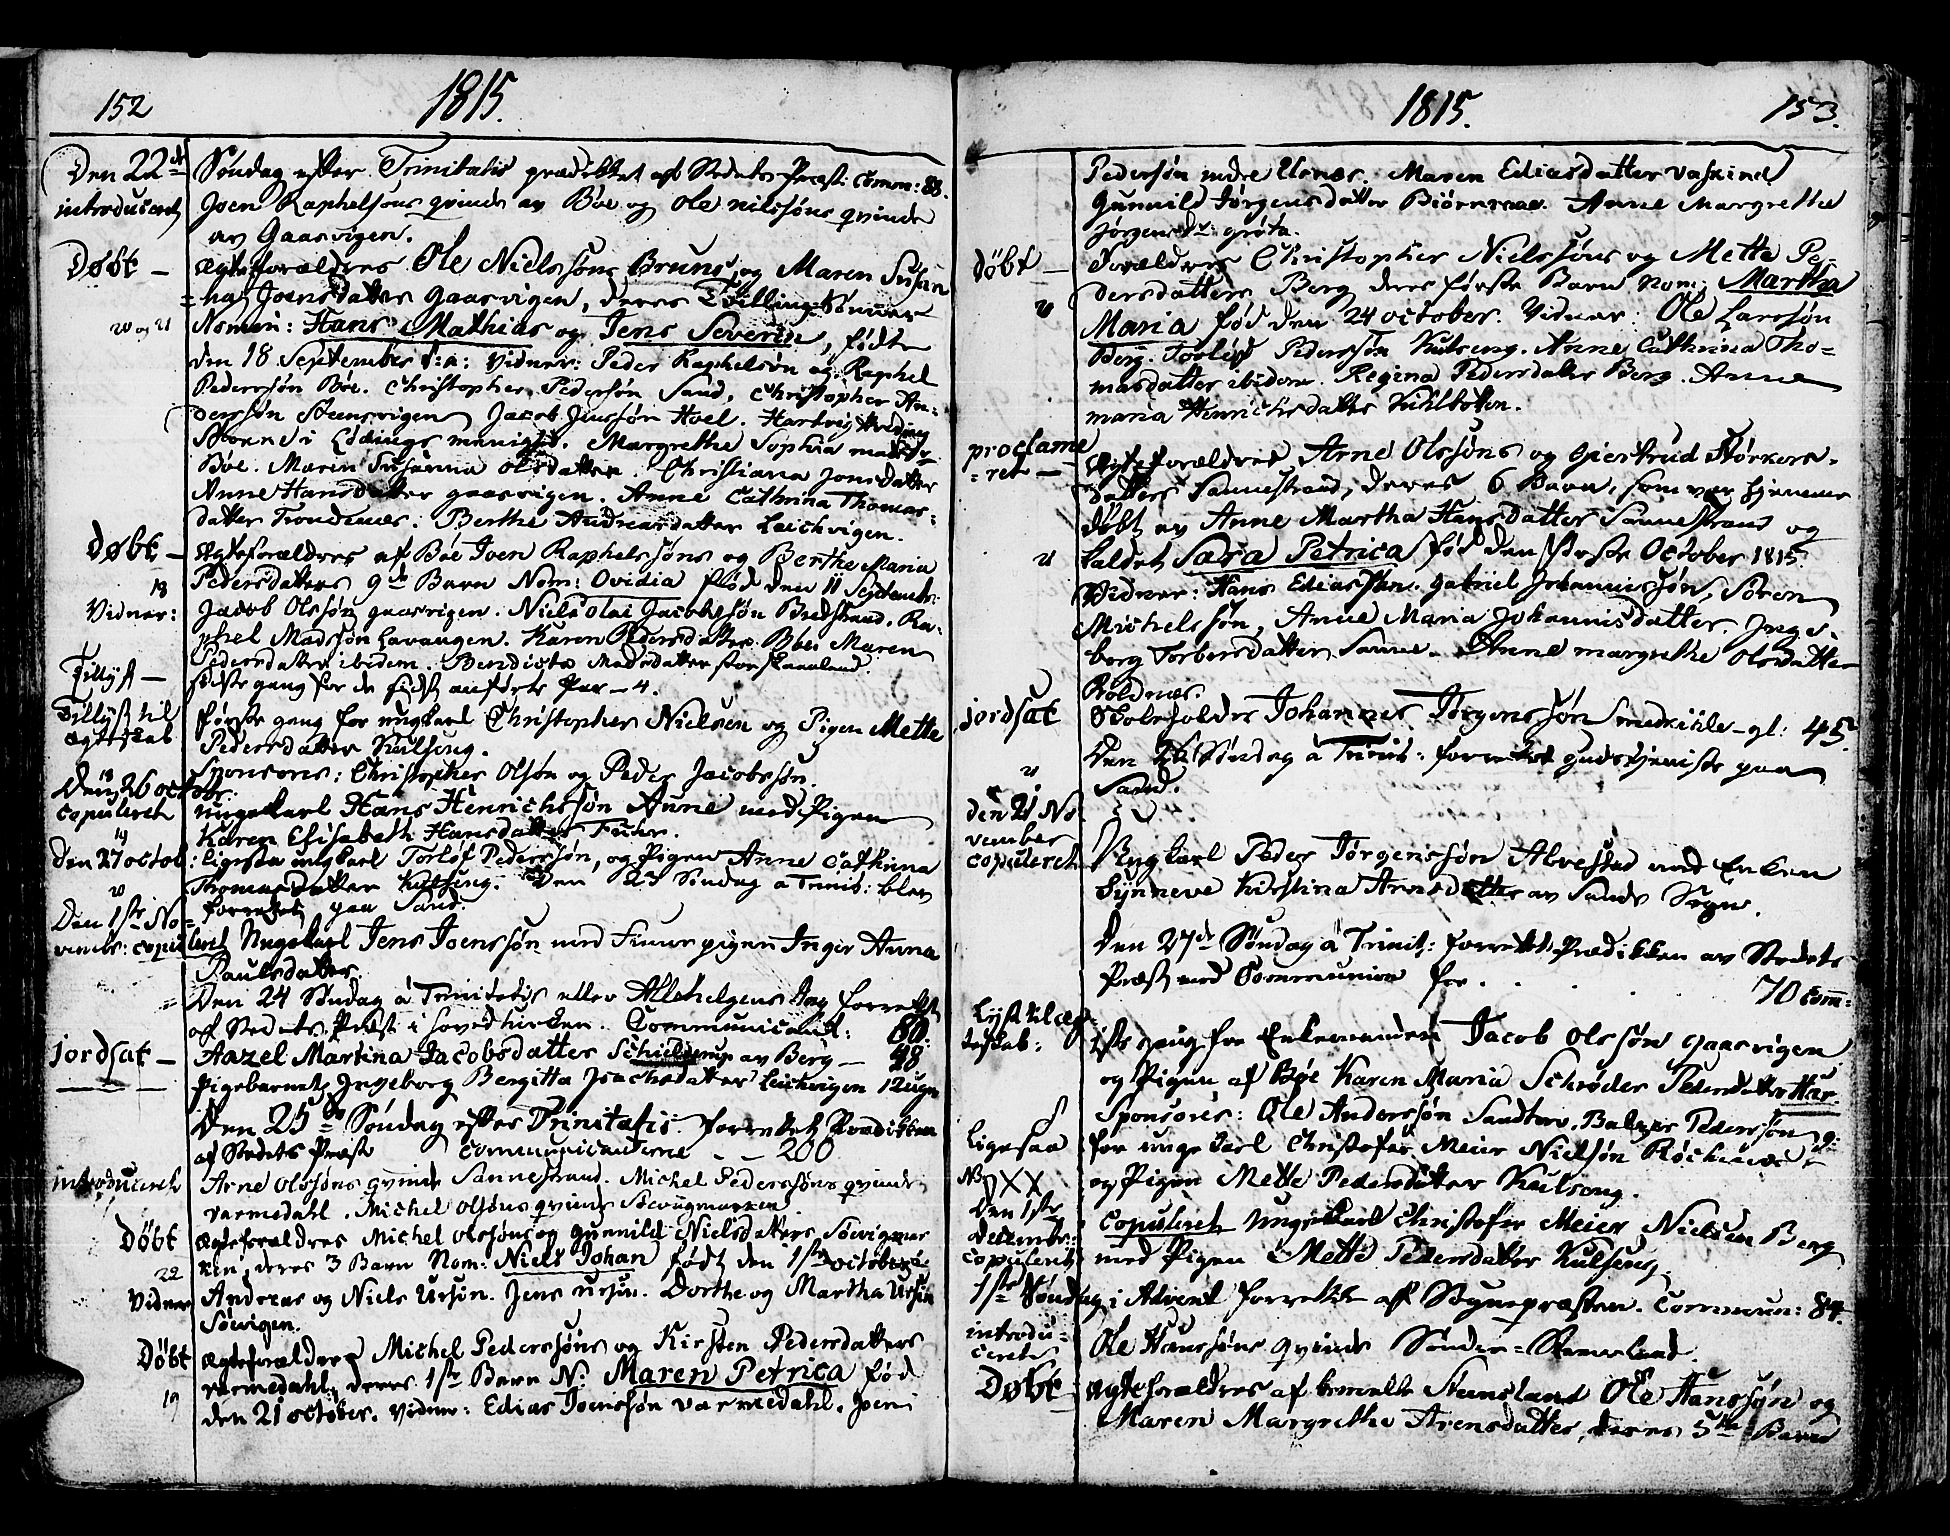 152
1815.
Den 22de Søndag efter Trinitatis prædikket af Stedets Præst: Comm: 88.
introduceret Joen Raphelsøns qvinde av Bøe og Ole Nilssøns qvinde
av Gaasvigen.
Døbt – Ægteforældres Ole Nielssøns Bruns, og Maren Susan
hæ Joensdatters Gaasvigen, deres Tvilling Sønner
20 og 21 Nomin: Hans Mathias og Jens Severin, født
den 18 September d:a: Vidner: Peder Raphelsøn og Raphel
Pederssøn Bøe. Christopher Pedersøn Sand, Christopher An-
derssøn Steensvigen Jacob Jenssøn Hoel. Hartvig
i Lødings menighed. Margrethe Sophia
Bøe. Maren Susanna Olsdatter. Christiana Jonsdatter
Anne Hansdatter gaasvigen. Anne Cathrina Thomas-
datter Trondenæs. Berthe Andreasdatter Leichvigen.
Døbt – Ægteforældres af Bøe Joen Raphelssøns og Berthe Maria
18 Pedersdatters 9de Barn Nom: Ovidia fød den 11 Septembr:
Vidner: Jacob Olssøn gaasvigen. Niels Olai Jacobssøn Bredstrand. Ra-
phel Madssøn Lavangen. Karen Pedersdatter Bøe. Maren
Pedersdatter ibidem. Bendicte Madsdatter
Tillyst – sidste gang for de sidst anførte Par – 4.
Tillyst til første gang for ungkarl Christopher Nielsen og Pigen Mette
Ægteskab Pedersdatter Kulseng.
Sponsores: Christopher Olsøn og Peder Jacobssøn.
18
Den 26 octobr
copuleret ungekarl Hans Henrichssøn Aune med Pigen
Karen Elisabeth Hansdatter
19
Den 27 octob: ligesaa ungkarl Torlof Pederssøn, og Pigen Anne Cathrina
Thomasdatter Kulseng. Den 23 Søndag a Trinit: blev
forrettet paa Sand.
Den 1ste No-
vembr: copuleret Ungekarl Jens Joenssøn med Pigen Inger Anna
Paulsdatter
Den 24 Søndag à Trinitatis eller Allehelgens Dag forrettet
af Stedets Præst i hovedkirken. Communicant: 80.
jordsat – Aazel Martina Jacobsdatter av Berg – 48
Pigebarnet Ingeborg Bergitta Isachsdatter Leichvigen 12 ugr
Den 25de Søndag efter Trinitatis forrettet Prædikken
af Stedets Præst Communicanterne – – 200
introduceret Arne Olssøns qvinde Sannestrand. Michel Pederssøns qvinde
Varmedahl. Michel Olsøns qvinde
Døbt Ægteforældres Michel Olssøns og Gunnild Nielsdatters
22 ken, deres 3 Barn Nom: Niels Johan født den 1ste october
Vidner Andreas og Niels Ursøn. Jens Ursin. Dorthe og Martha Ursin
Søvigen.
Døbt Ægteforældres Michel Pederssøns og Kirsten Pedersdatters
Varmedahl, deres 1ste Barn N: Maren Petrica fød
19 den 21 october. Vidner: Edias Joenssøn Varmedahl. Joen
1815.
153.
Pedersøn Maren Ediasdatter
Gunnild Jørgensdatter Biørnraae. Anne Margrethe
Jørgensdr: grøta.
Døbt – Forældres Christopher Nielssøns og Mette Pe-
dersdatters Berg deres første Barn Nom: Martha
Maria fød den 24 october. Vidner: Ole Larssøn
Berg. Torløf Pederssøn Kulseng. Anne Cathrina Tho-
masdatter ibidem. Regina Pedersdatter Berg. Anne
maria Henrichsdatter
proclame
ret – Ægteforældres Arne Olssøns og Giertrud Størkers-
datters Sannestrand, deres 6 Barn, som var hjemme
døbt av Anne Martha Hansdatter Sannestrand og
kaldet Sara Petrica fød den første October 1815.
Vidner: Hans Ediassøn. Gabriel Johannessøn, Søren
Michelssøn, Anne Maria Johannisdatter. Inge-
borg Torbersdatter Sanne. Anne margrethe Olsdatter
Roldnæs.
jordsat Johannes Jørgenssøn – gl: 45.
Den 26 Søndag à Trinit: forrettet gudstjeniste paa
Sand.
den 21 No-
vember
copuleret Ungkarl Peder Jørgenssøn Alvestad med Enken
Synneve Kirstina Arnsdatter av Sands Sogn.
Den 27de Søndag à Trinit: forrettet Prædikken av Stedets
Præst med Communion for . . . 70 Com:
Lyst til æg-
teskab: 1ste gang for Enkemanden Jacob Olssøn gaasvigen
og Pigen af Bøe Karen Maria Schrøder Pedersdatter
Sponsores: Ole Anderssøn Sandtorv. Baltzer Pederssøn
ligesaa for ungekarl Christofer Meier Nielsøn
og Pigen Mette Pedersdatter Kulseng.
NB XX
Den 1ste
decembr: copuleret ungekarl Christofer Meier Nielsen Berg
copuleret med Pigen Mette Pedersdatter Kulseng.
1ste Søndag i Advent forrettet af Sognepræsten. Commun: 84.
introdu-
ceret Ole Hanssøns qvinde
Døbt Ægteforældres af Ole Hanssøn og
Maren Margrethe Arensdatter, deres 5te Barn